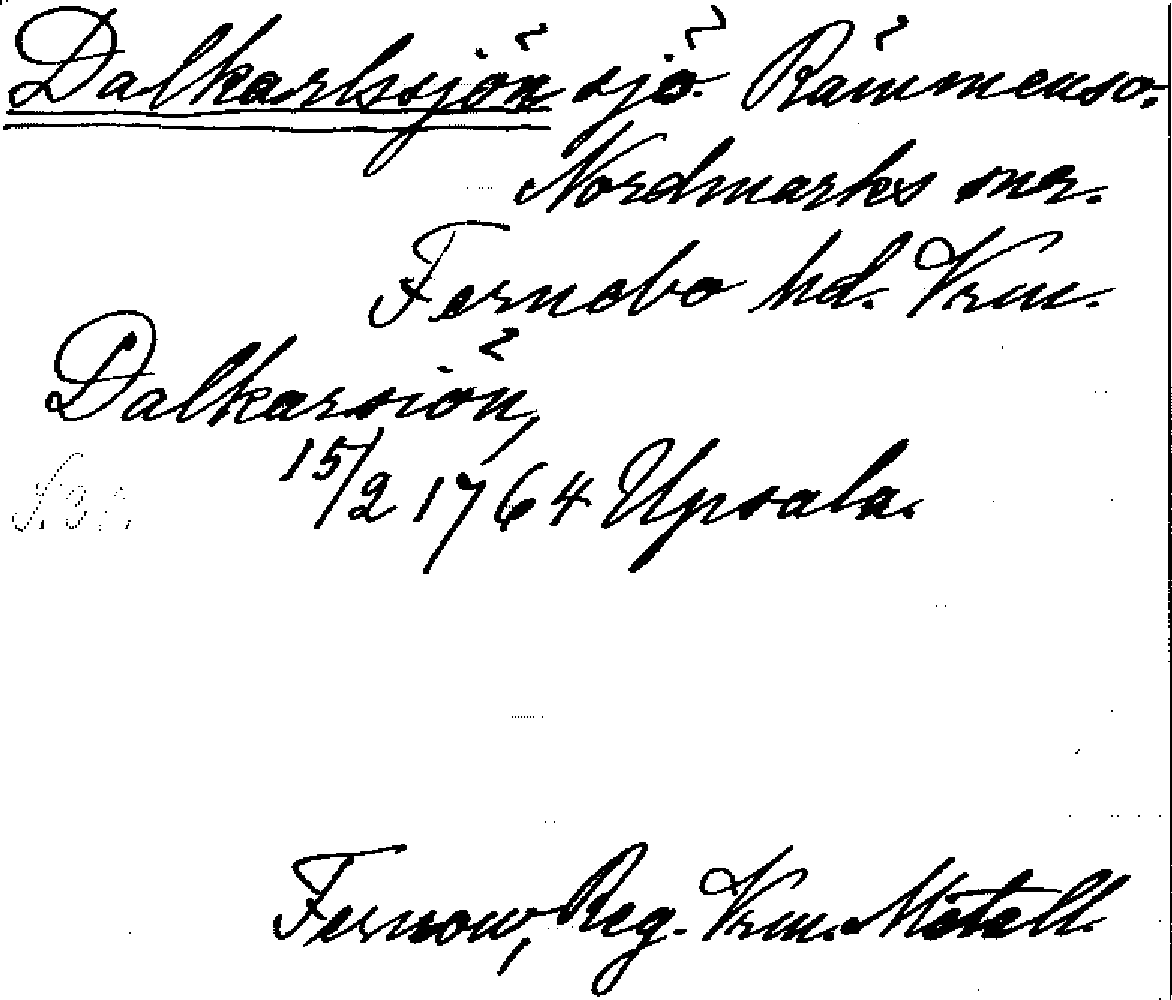 Dalkarlssjön sjö. Rämmens so.
Nordmarks snr.
Fernebo hd. Vrm.
Dalkarsiön,
15/2 1764 Upsala.
Fernow, Reg. Vrm. Metall.